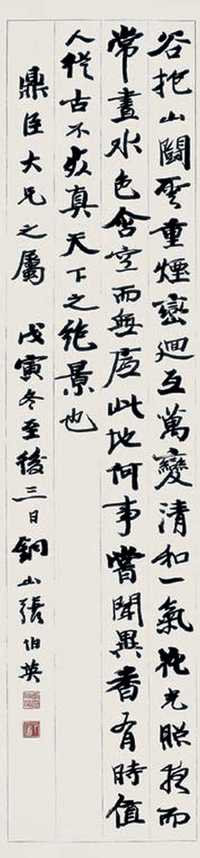 谷抱山鬭雲重煙巒迴互萬變清和一氣花光照夜而
常晝水色含空而無底此地何事嘗聞異香有時值
人從古不真天下之絕景也
鼎臣大兄之屬 戊寅冬至後三日銅山張伯英